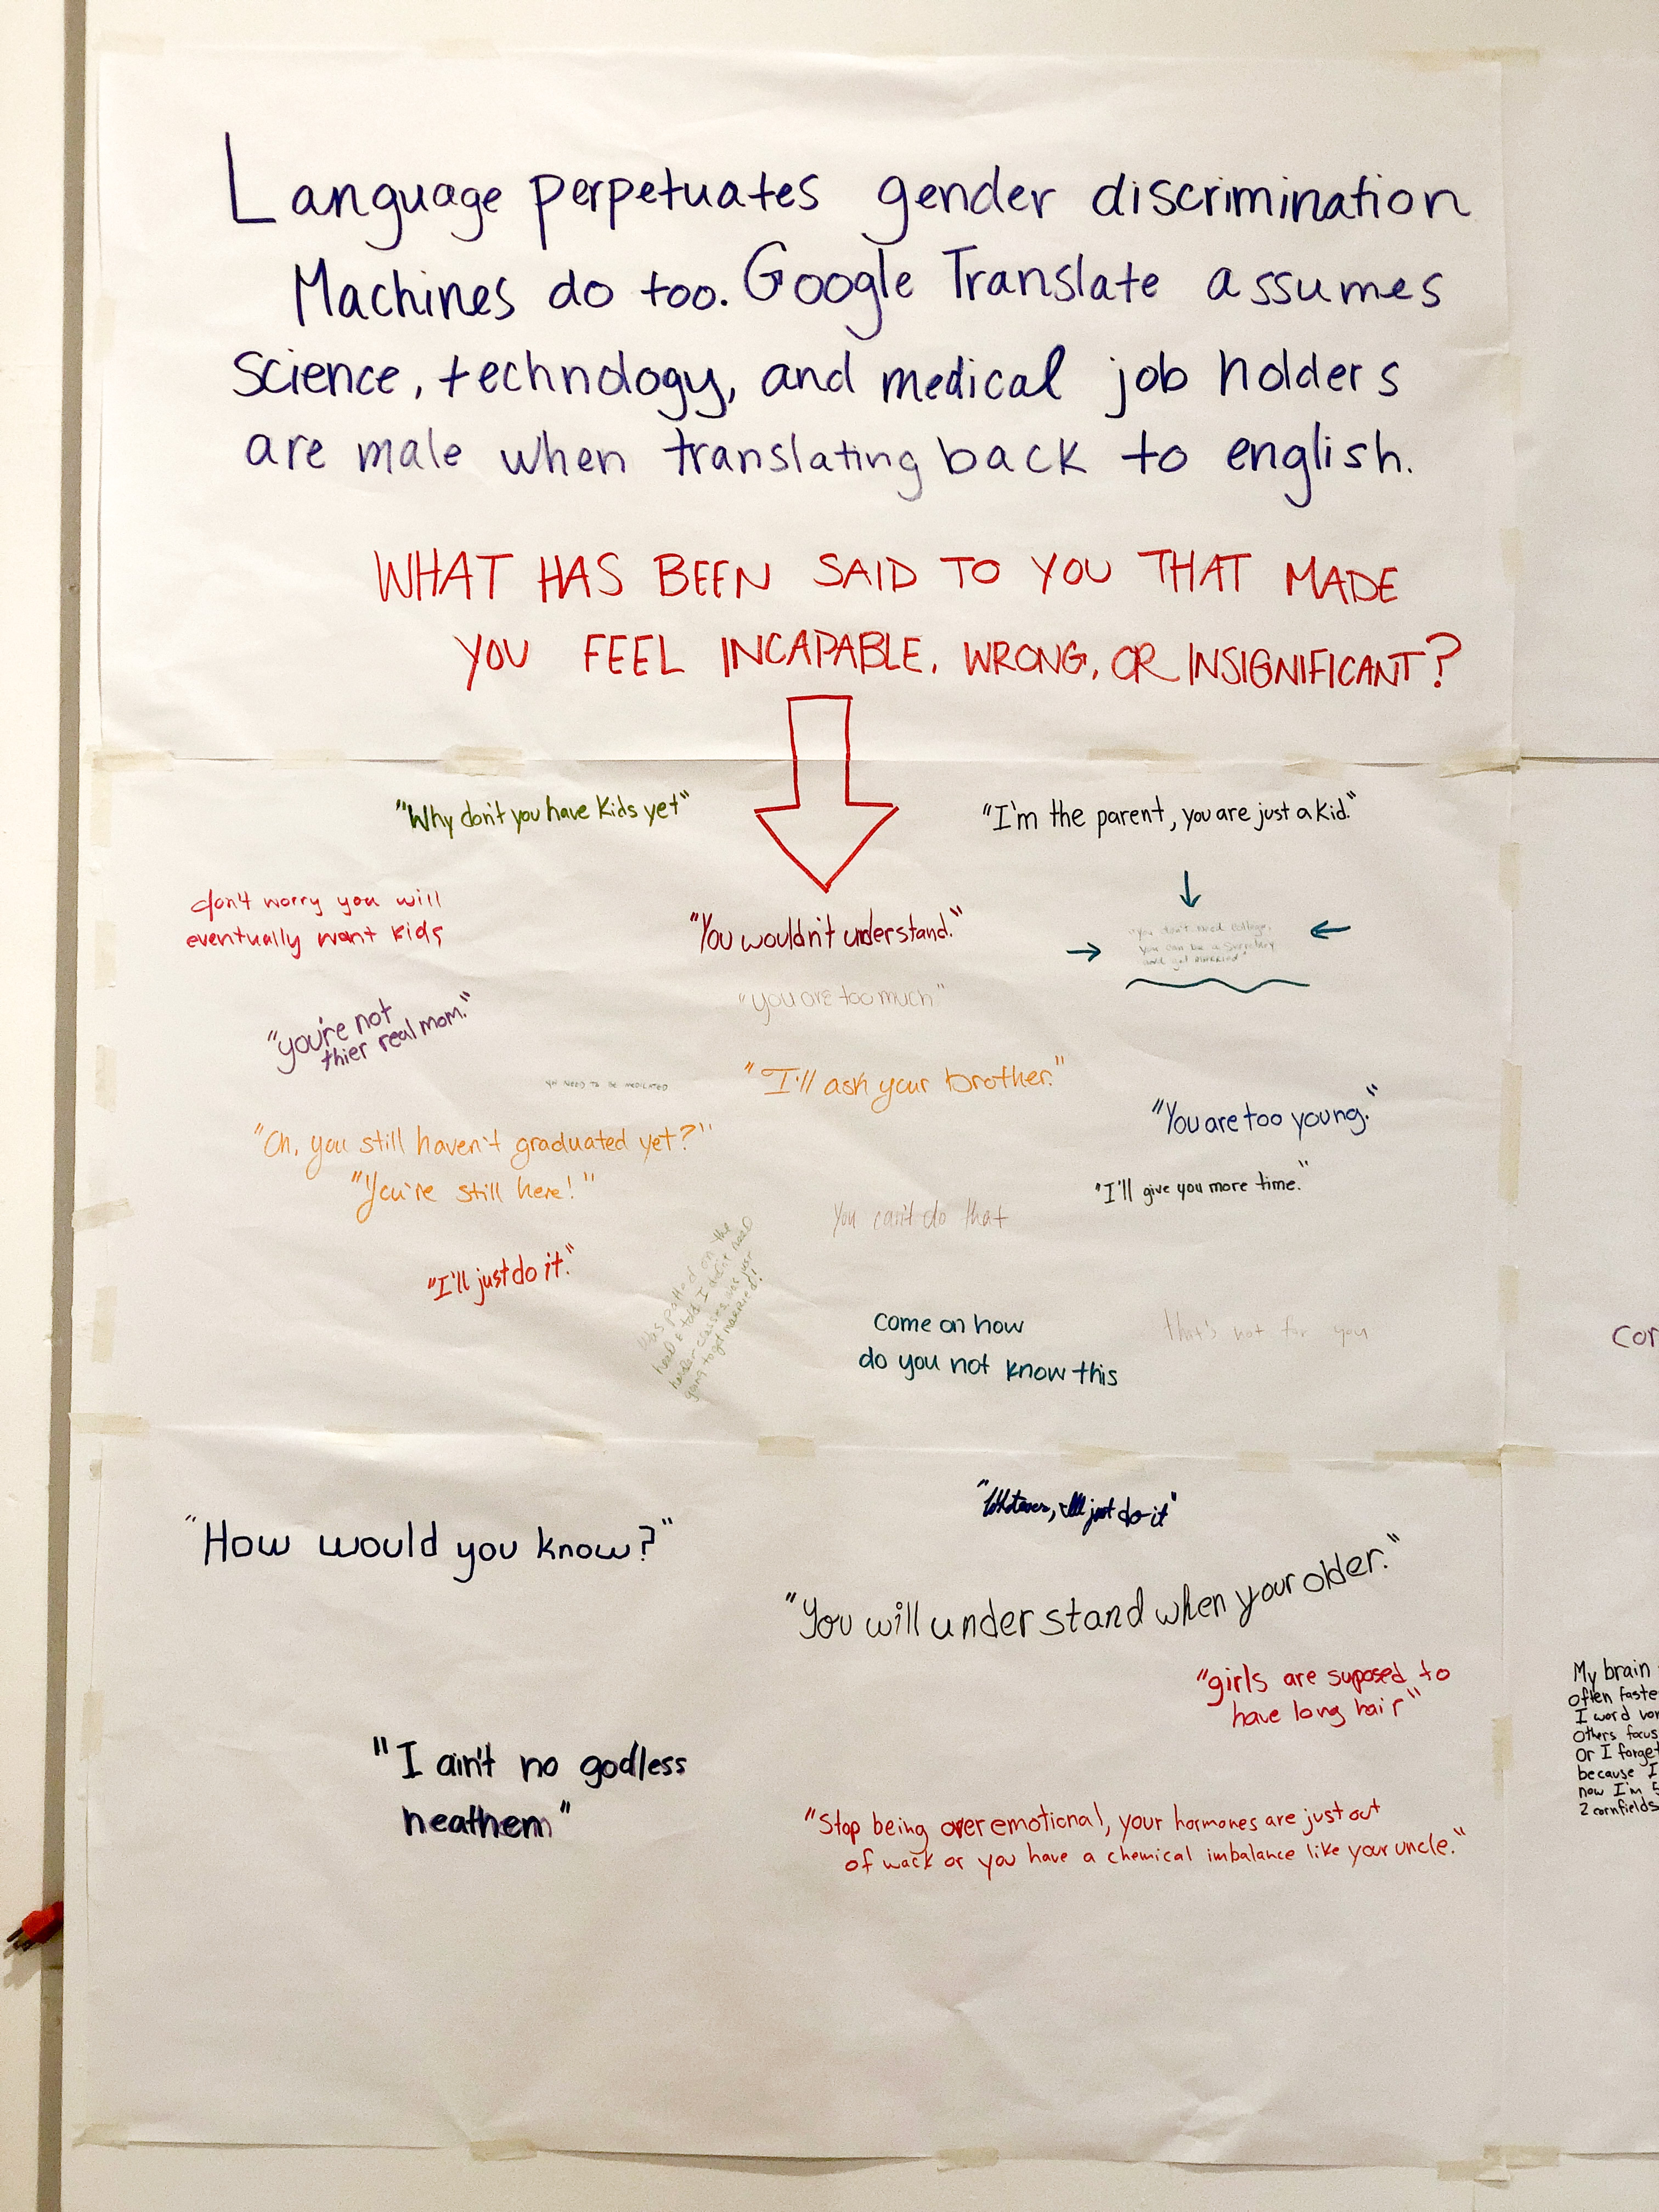 Language perpetuates gender discrimination
Machines do too. Google Translate assumes
Science, technology, and medical job holders
are male when translating back to english.
WHAT HAS BEEN SAID TO YOU THAT MADE
YOU FEEL INCAPABLE, WRONG, OR INSIGNIFICANT?
"Why don't you have kids yet"
"I'm the parent, you are just a kid."
don't worry you will
eventually want kids
"You wouldn't understand."
"you don't need college,
you can be a secretary
and get married"
"you are too much"
"you're not
thier real mom."
YOU NEED TO BE MEDICATED
"I'll ask your brother."
"You are too young."
"Oh, you still haven't graduated yet?"
"You're still here!"
"I'll give you more time."
You can't do that
"I'll just do it."
Was patted on the
head & told I didn't need
harder classes, was just
going to get married!
Come on how
do you not know this
that's not for you
Cor
"How would you know?"
"Whatever, I'll just do it"
"You will understand when your older."
"girls are suposed to
have long hair"
My brain
often faste
I word vom
Others focus
Or I forget
because I
now I'm 5
2 cornfields
"I ain't no godless
heathem"
"Stop being over emotional, your hormones are just out
of wack or you have a chemical imbalance like your uncle."